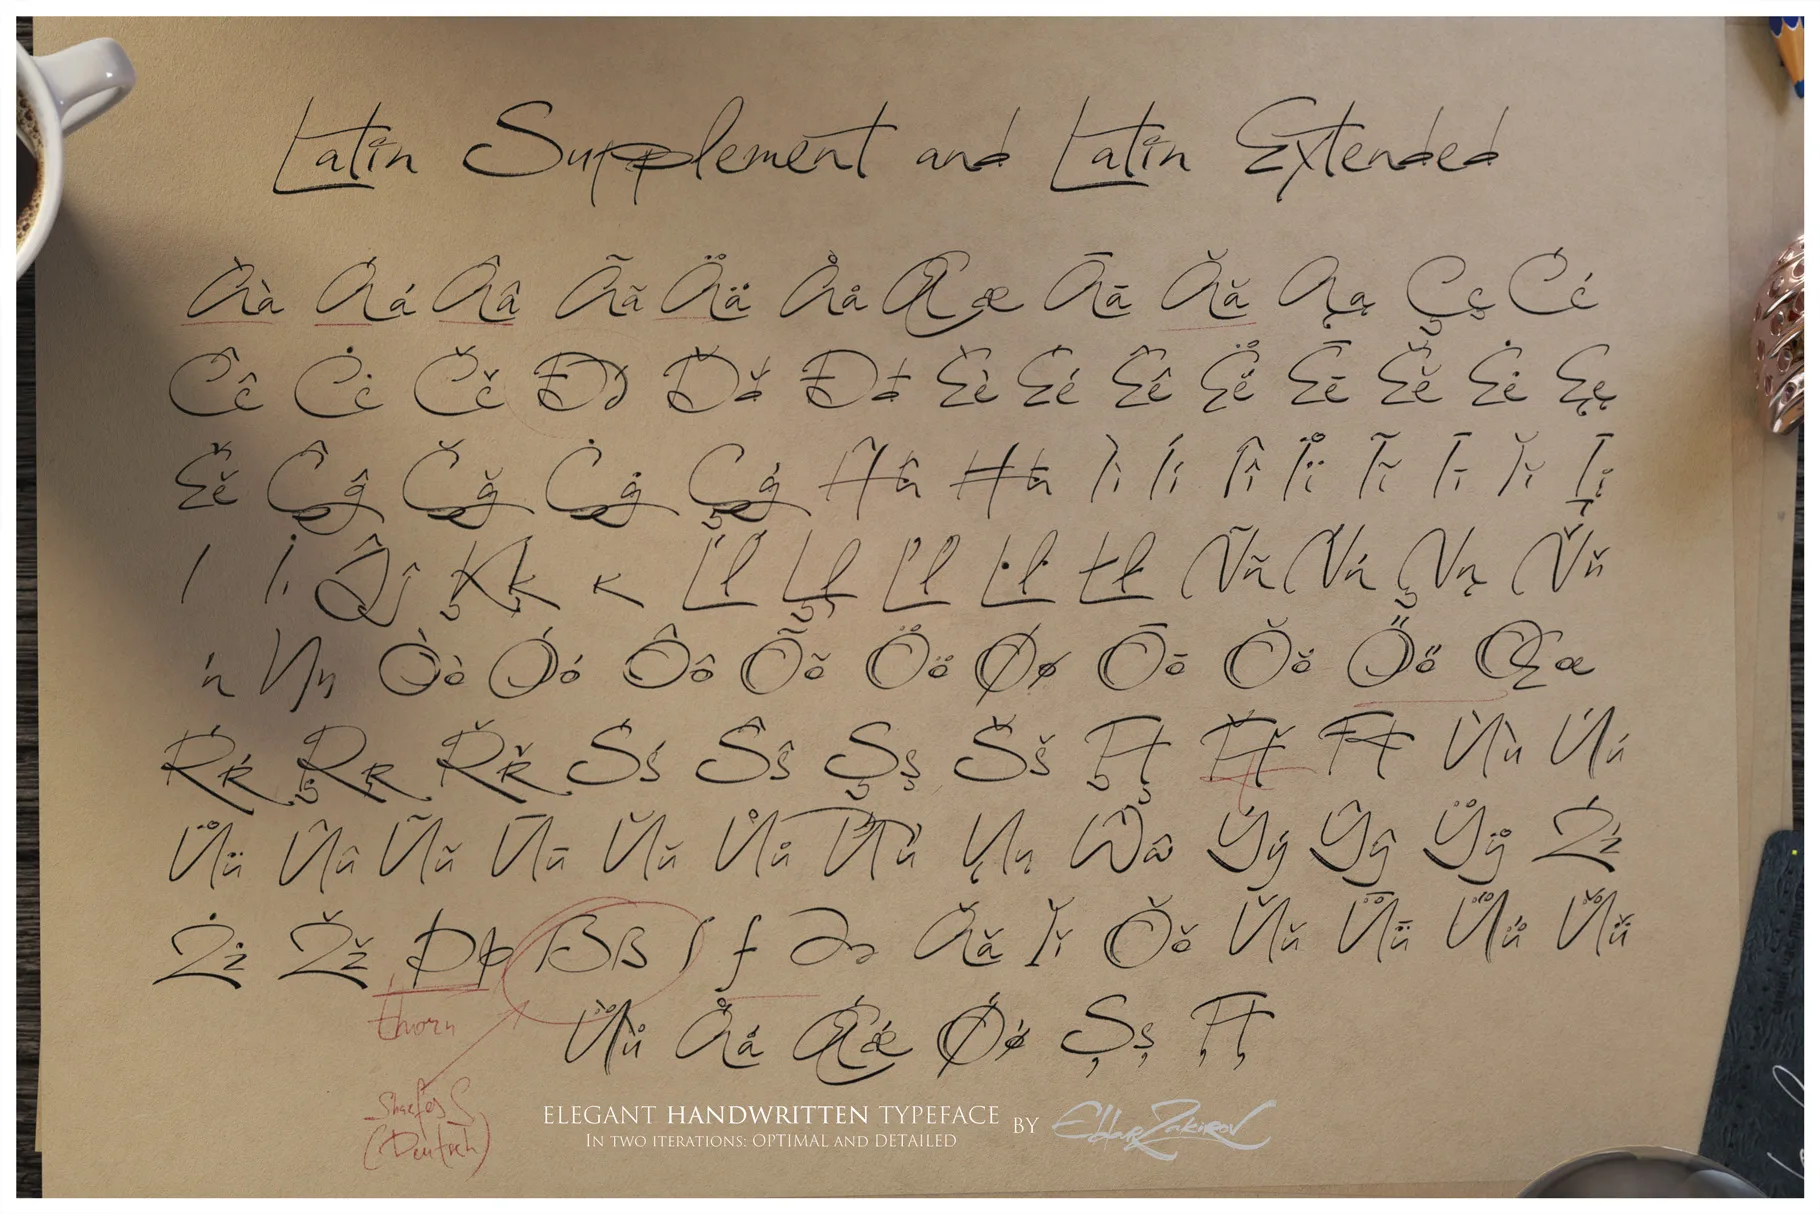 Latin Supplement and Latin Extended
Àà Áá Ââ Ãã Ää Åå Ææ Āā Ăă Ąą Çç Ćć
Ĉĉ Ċċ Čč Ðð Ďď Đđ Èè Éé Êê Ëë Ēē Ĕĕ Ėė Ęę
Ěě Ĝĝ Ğğ Ġġ Ģģ Ĥĥ Ħħ Ìì Íí Îî Ïï Ĩĩ Īī Ĭĭ Įį
I İi Ĵĵ Ķķ ĸ Ĺĺ Ļļ Ľľ Ŀŀ Łł Ññ Ńń Ņņ Ňň
ŉ Ŋŋ Òò Óó Ôô Õõ Öö Øø Ōō Ŏŏ Őő Œœ
Ŕŕ Ŗŗ Řř Śś Ŝŝ Şş Šš Ţţ Ťť Ŧŧ Ùù Úú
Üü Ûû Ũũ Ūū Ŭŭ Ůů Űű Ųų Ŵŵ Ýý Ŷŷ Ÿÿ Źź
Żż Žž Þþ ẞß ſ ƒ Əə Ǎǎ Ǐǐ Ǒǒ Ǔǔ Ǖǖ Ǘǘ Ǚǚ
thorn
Ǜǜ Ǻǻ Ǽǽ Ǿǿ Șș Țț
Sharfes S
(Deutsch)
ELEGANT HANDWRITTEN TYPEFACE BY Eldar Zakirov
IN TWO ITERATIONS: OPTIMAL AND DETAILED